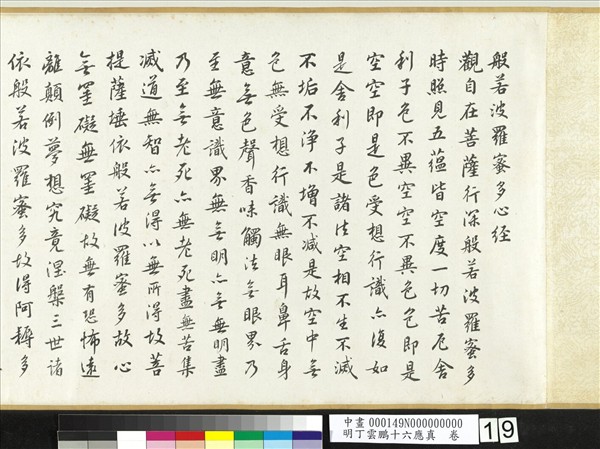 般若波羅蜜多心經
觀自在菩薩行深般若波羅蜜多
時照見五蘊皆空度一切苦厄舍
利子色不異空空不異色色即是
空空即是色受想行識亦復如
是舍利子是諸法空相不生不滅
不垢不淨不增不減是故空中無
色無受想行識無眼耳鼻舌身
意無色聲香味觸法無眼界乃
至無意識界無無明亦無無明盡
乃至無老死亦無老死盡無苦集
滅道無智亦無得以無所得故菩
提薩埵依般若波羅蜜多故心
無罣礙無罣礙故無有恐怖遠
離顛倒夢想究竟涅槃三世諸
依般若波羅蜜多故得阿耨多
中畫 000149N000000000
明丁雲鵬十六應真 卷
19